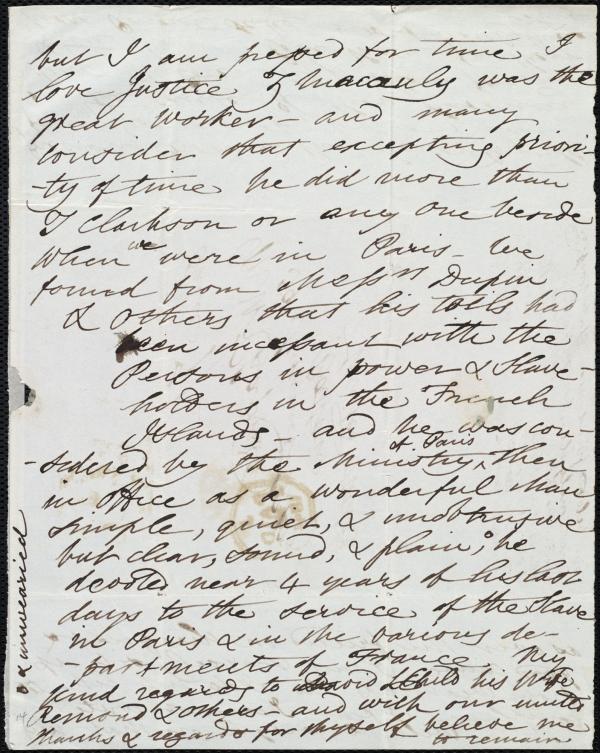 but I am pressed for time I
love Justice Z Macauly was the
great worker - and many
consider that excepting priori-
-ty of time he did more than
T Clarkson or any one beside
When we were in Paris - We
found from Messrs Dupin
& Others that his toils had
been incessant with the
Persons in power & Slave-
holders in the French
Islands - and he was con-
-sidered by the Ministry of Paris then
in Office as a wonderful Man
simple, quiet, & unobtrusive
but clear, sound, & plain, he
devoted near 4 years of his last
days to the service of the Slave
in Paris & in the various de-
-partments of France My
kind regards to David L Child his Wife
Remond & others - and with our united
thanks & regards for thyself believe me
to remain
& unwearied